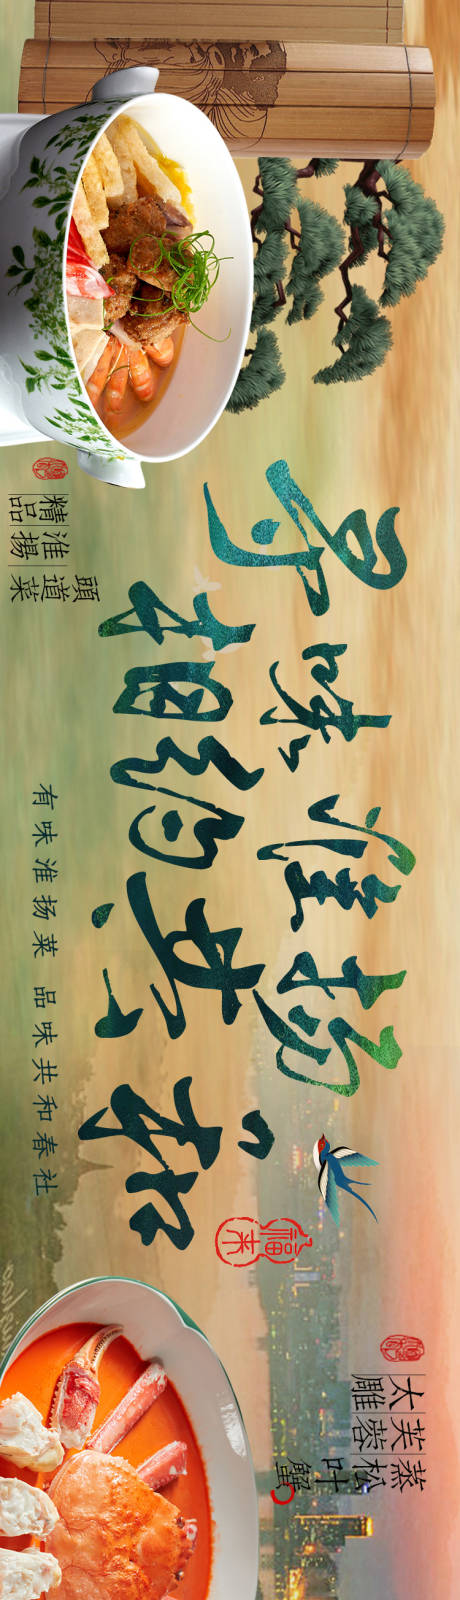 寻味淮扬
相约共“和”
福来
有味淮扬菜 品味共和春社
精品
淮揚
頭道菜
太雕
芙蓉
蒸松叶蟹